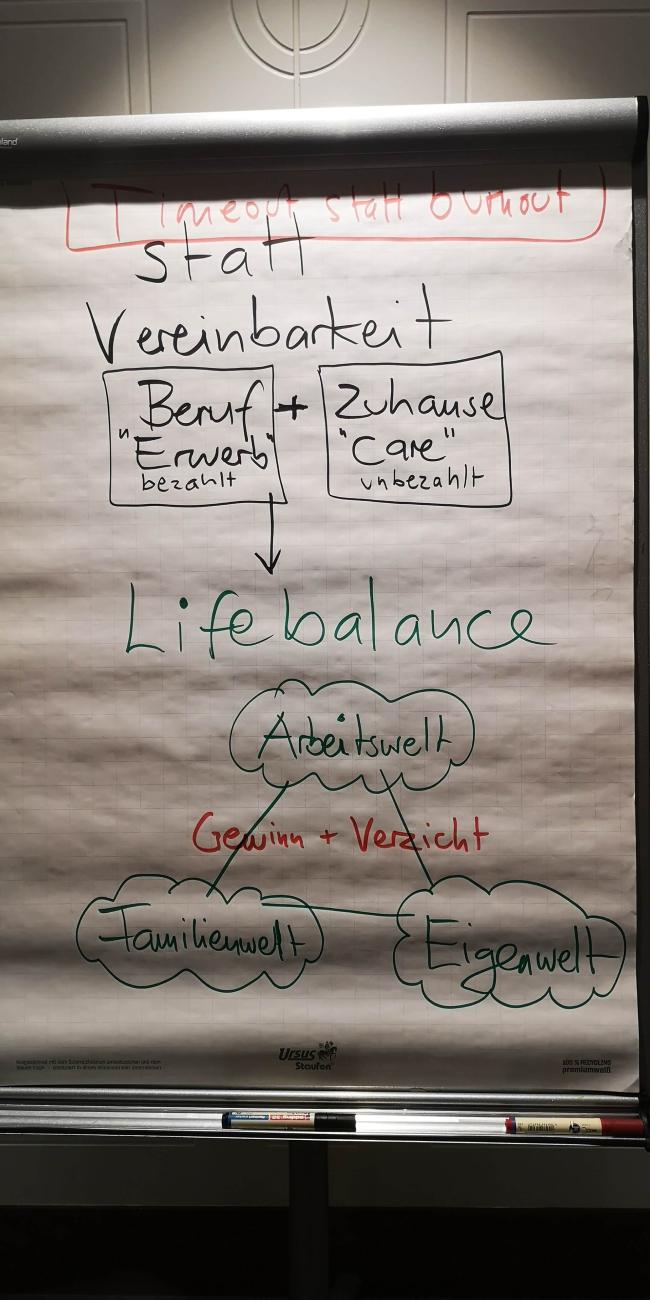 Timeout statt burnout
statt
Vereinbarkeit
Beruf + Zuhause
"Erwerb" "Care"
bezahlt unbezahlt
Lifebalance
Arbeitswelt
Gewinn + Verzicht
Familienwelt
Eigenwelt
Ursus
Staufen
100 % RECYCLING
premiumweiß